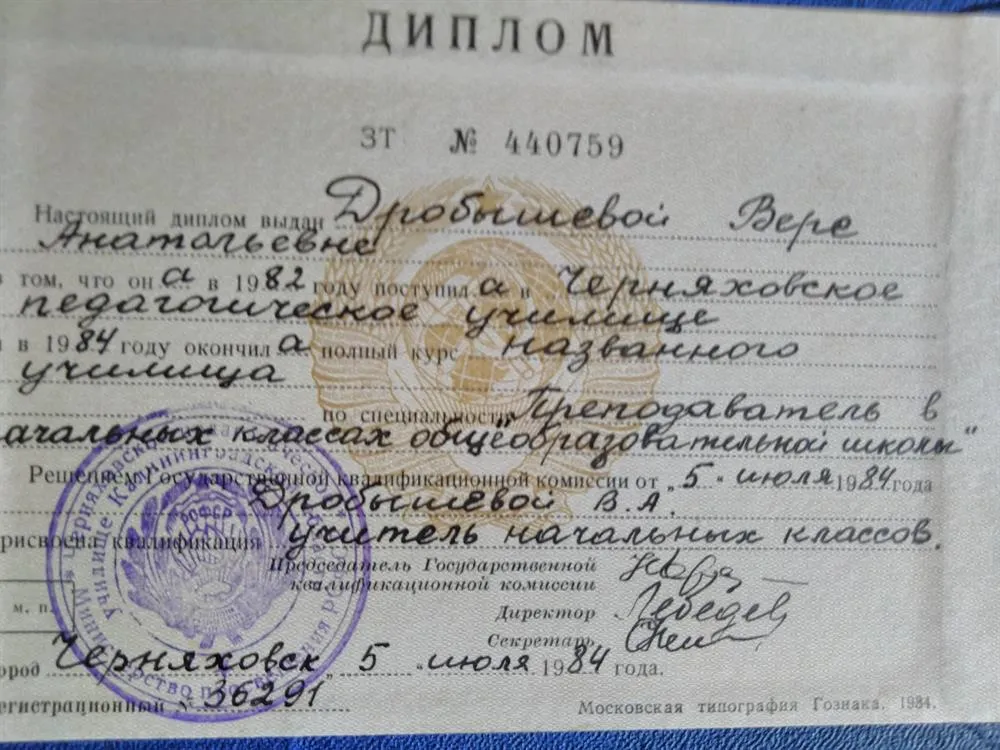 ДИПЛОМ
ЗТ № 440759
Настоящий диплом выдан Дробышевой Вере
Анатольевне
в том, что он а в 1982 году поступил а в Черняховское
педагогическое училище
и в 1984 году окончил а полный курс названного
училища
по специальности „Преподаватель в
ачальных классах общеобразовательной школы"
Решением Государственной квалификационной комиссии от „5" июля 1984 года
Дробышевой В.А.
присвоена квалификация учитель начальных классов.
Председатель Государственной
квалификационной комиссии
Директор Лебедев
Секретарь
м. п.
ород Черняховск 5 " июля 1984 года.
егистрационный № 36291
Московская типография Гознака. 1984.
РСФСР
Министерство просвещения РСФСР
Черняховское педагогическое
училище Калининградской области